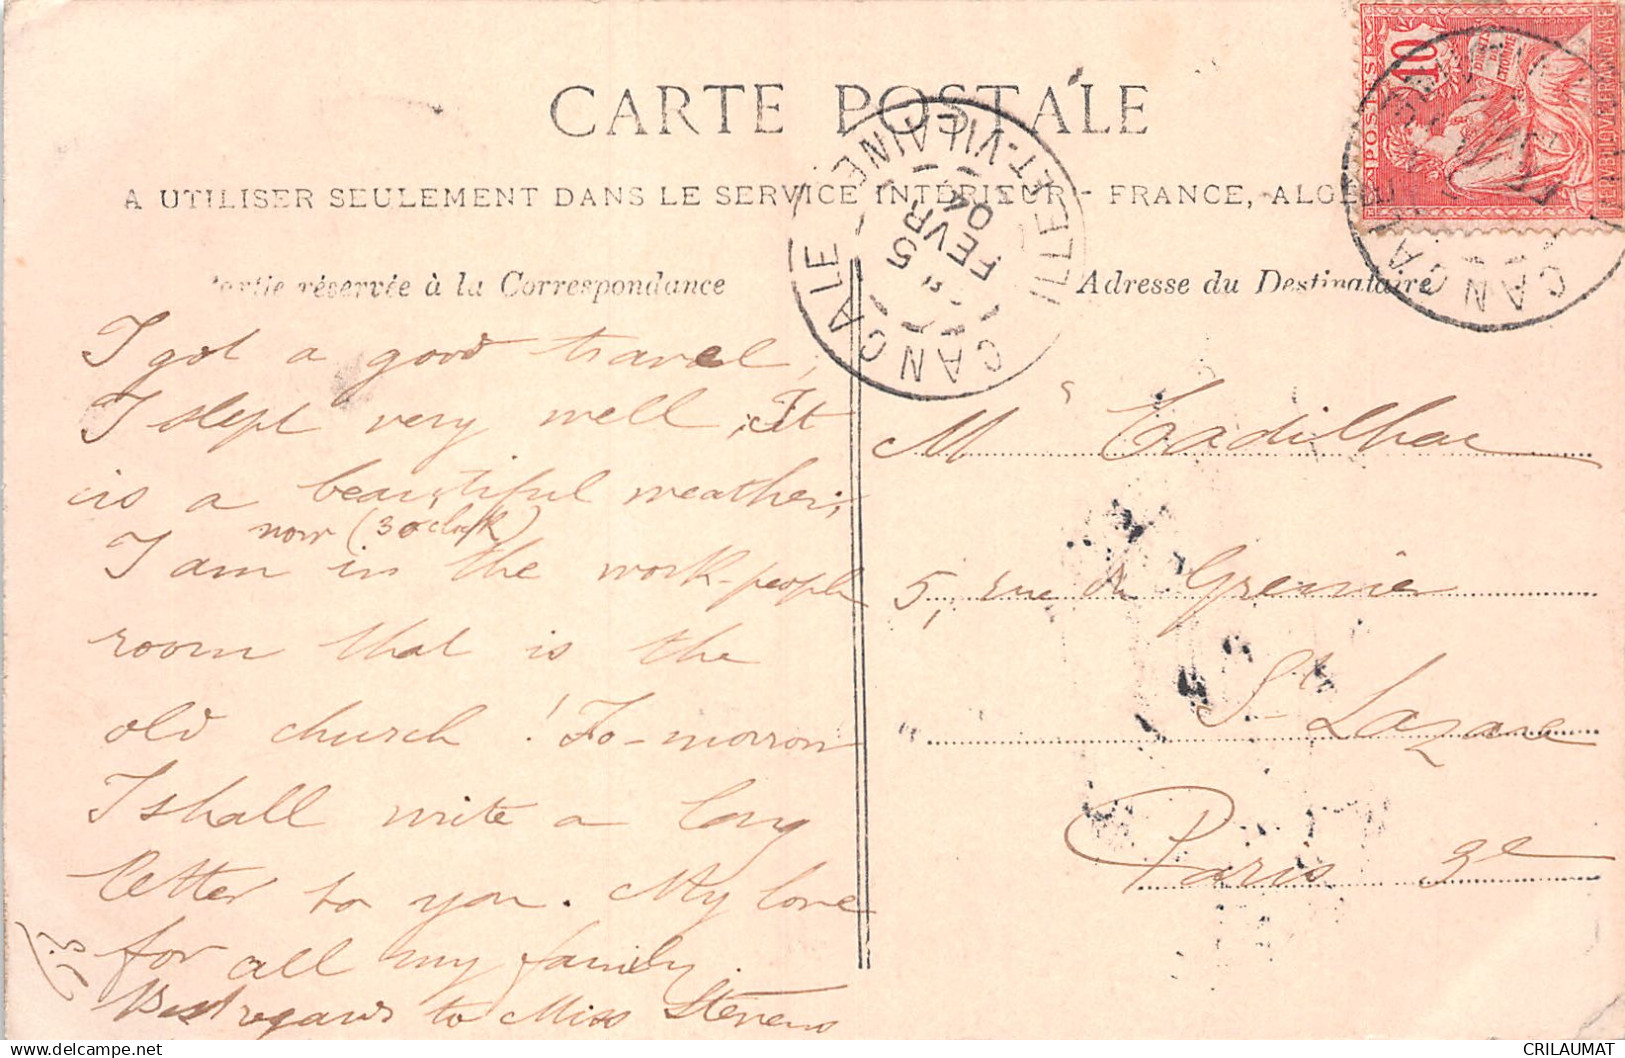 CARTE POSTALE
A UTILISER SEULEMENT DANS LE SERVICE INTÉRIEUR - FRANCE, ALG
Partie réservée à la Correspondance
I got a good travel,
I slept very well, It
is a beautiful weather,
now (3 o'clock)
I am in the work-people
room that is the
old church ! To-morrow
I shall write a long
letter to you. My love
for all my family.
Best regards to Miss Stevens
Adresse du Destinataire
Mr Cadilhac
5, rue du Grenier
St Lazare
Paris 3e
CANCALE
ILLE-ET-VILAINE
5
FEVR
04
POSTES
10
DROITS
DE
L'HOMME
MOUCHON
REPUBLIQUE FRANCAISE
CANCALE
delcampe.net
CRILAUMAT